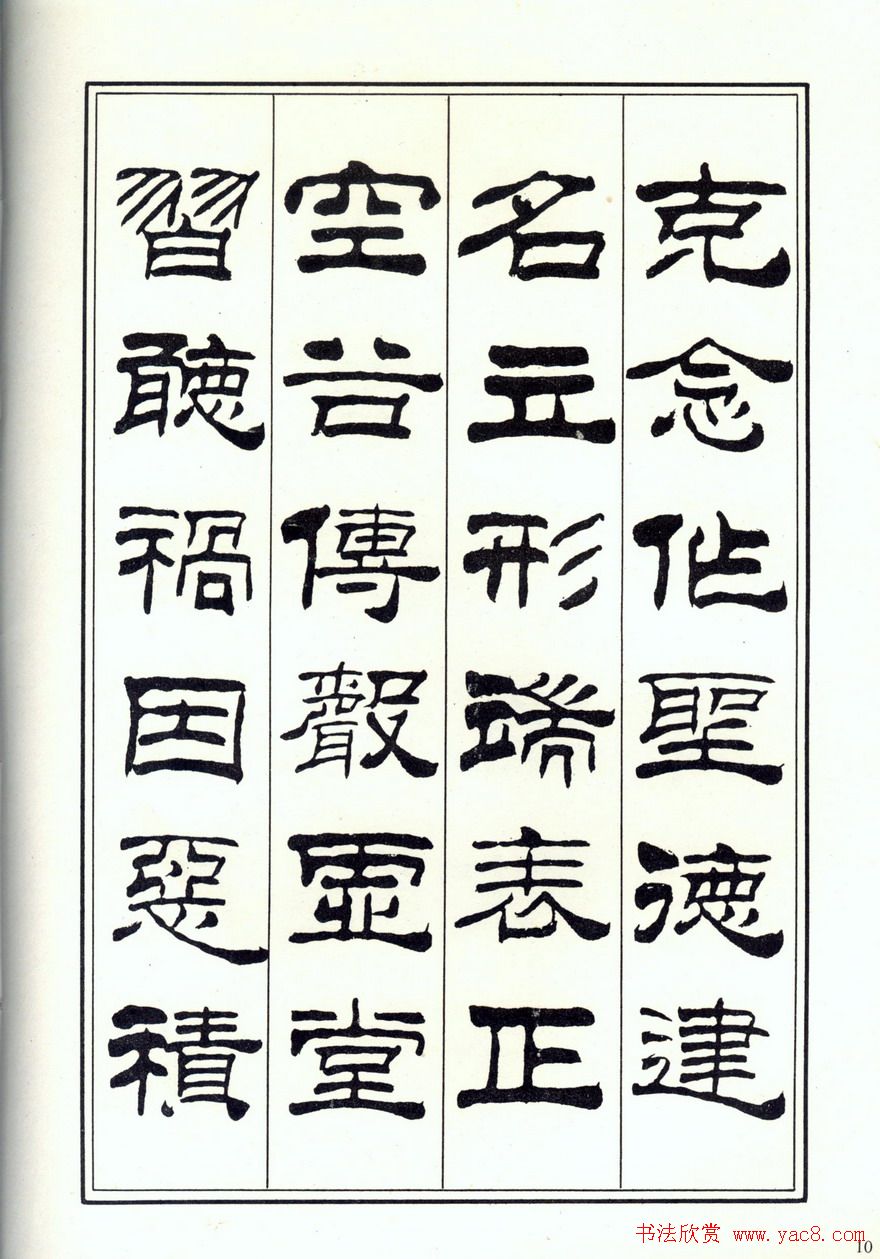 克念作聖德建
名立形端表正
空谷傳聲虛堂
習聽禍因惡積
书法欣赏 www.yac8.com
10